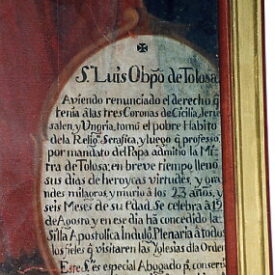 S. Luis Obpõ de Tolosa
Aviendo renunciado el derecho q̃
tenia â las tres Coronas de Cicilia, Jeru
salen, y Ungria, tomó el pobre Habito
de la Relig.ⁿ Serafica, y luego q̃ professo,
por mandato del Papa admitio la Mi
tra de Tolosa; en breve tiempo lleno
sus dias de heroycas virtudes, y
milagros, y murio à los 23 años, y
seis Meses de su Edad. Se celebra â 19
de Agosto, y en ese dia ha concedido la
Silla Apostolica Indulg.ª Plenaria â todos
los fieles q̃ visitaren las Iglesias dla Orden
Este S.ᵗᵒ es especial Abogado p.ª